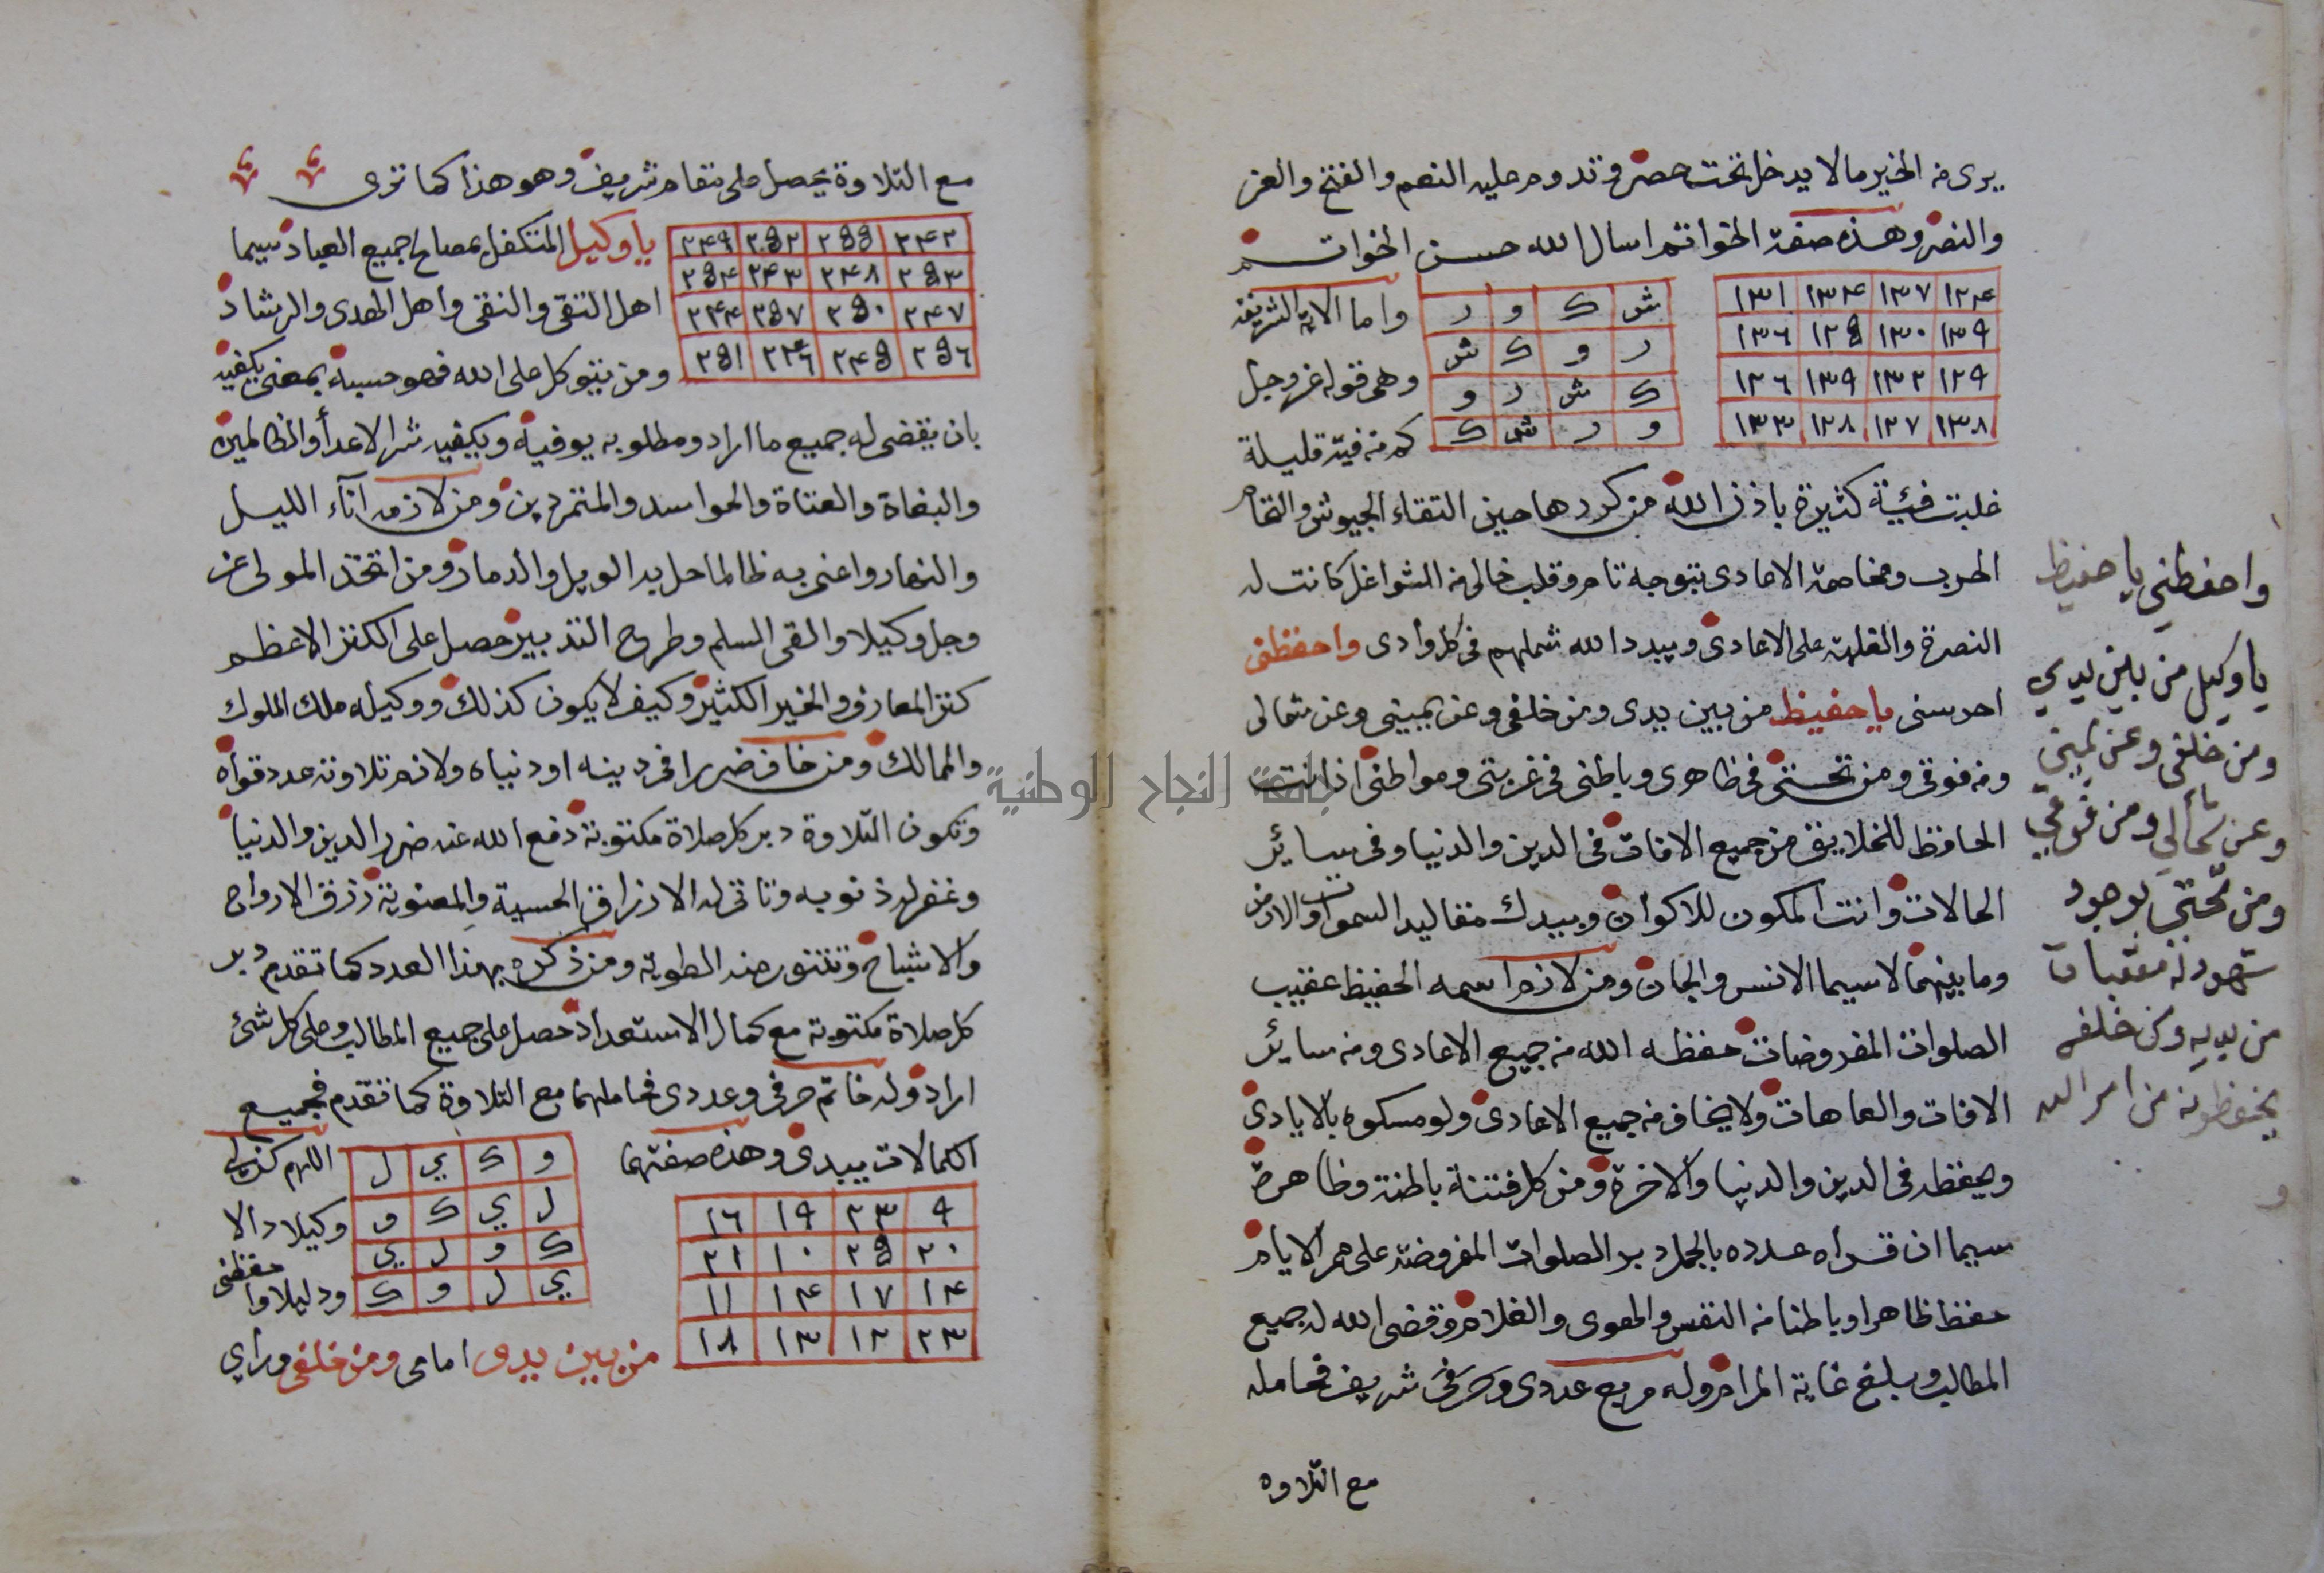 يرى من الخير ما لا يدخل تحت حصر وتدوم عليه النعم والفتح والعز
والنصر وهذه صفة الخواتم اسال الله حسن الخواتم
١٢٤ ١٣٧ ١٣٤ ١٣١
١٣٩ ١٣٠ ١٢٥ ١٣٦
١٢٩ ١٣٢ ١٣٩ ١٢٦
١٣٨ ١٢٧ ١٢٨ ١٣٣
ش ك و ر
ر و ك ش
ك ش ر و
و ر ش ك
واما الاية الشريفة
وهى قوله عز وجل
كم من فية قليلة
غلبت فئية كثيرة باذن الله من كررها حين التقاء الجيوش والتقام
الحرب ومخاصمة الاعادى بتوجه تام وقلب خالى من الشواغل كانت له
النصرة والغلبة على الاعادى ويبدد الله شملهم فى كل وادى واحفظنى
احرسنى يا حفيظ من بين يدى ومن خلفى وعن يمينى وعن شمالى
ومن فوقى ومن تحتى فى ظاهرى وباطنى فى غربتى ومواطنى اذ انت
الحافظ للخلايق من جميع الافات فى الدين والدنيا وفى سائر
الحالات وانت المكون للاكوان وبيدك مقاليد السموات والارض
وما بينهما لا سيما الانس والجان ومن لازم اسمه الحفيظ عقيب
الصلوات المفروضات حفظه الله من جميع الاعادى ومن سائر
الافات والعاهات ولا يخاف من جميع الاعادى ولو مسكوه بالايادى
ويحفظه فى الدين والدنيا والاخرة ومن كل فتنة باطنة وظاهرة
سيما ان قراه عدده بالجمل دبر الصلوات المفروضة على ممر الايام
حفظ ظاهرا وباطنا من النفس والهوى والغلام وقضى الله له جميع
المطالب وبلغ غاية المرام وله مربع عددى وحرفى شريف فحامله
مع التلاوه
واحفظني يا حفيظ
يا وكيل من بين يدي
ومن خلفي وعن يميني
وعن شمالي ومن فوقي
ومن تحتي بوجود
شهود له معقبات
من بين يديه ومن خلفه
يحفظونه من امر الله
مع التلاوة يحصل على مقام شريف وهو هذا كما ترى
٢٤٢ ٢٥٥ ٢٥٢ ٢٤٩
٢٥٣ ٢٤٨ ٢٤٣ ٢٥٤
٢٤٧ ٢٥٠ ٢٥٧ ٢٤٤
٢٥٦ ٢٤٥ ٢٤٦ ٢٥١
يا وكيل المتكفل بمصالح جميع العباد سيما
اهل التقى والنقى واهل الهدى والرشاد
ومن يتوكل على الله فهو حسبه بمعنى يكفيه
بان يقضى له جميع ما اراد ومطلوبه يوفيه ويكفيه شر الاعدأ والظالمين
والبغاة والعتاة والحواسد والمتمردين ومن لازمه آنآء الليل
والنهار واعنى به ظالما حل به الويل والدمار ومن اتخذ المولى عز
وجل وكيلا والقى السلم وطرح التدبير حصل على الكنز الاعظم
كنز المعارف والخير الكثير وكيف لا يكون كذلك ووكيله ملك الملوك
والممالك ومن خاف ضررا فى دينه او دنياه ولازم تلاوته عدد قواه
وتكون التلاوة دبر كل صلاة مكتوبة دفع الله عنه ضرر الدين والدنيا
وغفر له ذنوبه وتاتى له الارزاق الحسية والمعنوية رزق الارواح
والاشباح وتتنور منه الطوية ومن ذكره بهذا العدد كما تقدم دبر
كل صلاة مكتوبة مع كمال الاستعداد حصل على جميع المطالب وعلى كل شئ
اراد وله خاتم حرفى وعددى فحاملهما مع التلاوة كما تقدم فجميع
الكمالات يبدى وهذه صفتهما
٩ ٢٣ ١٩ ١٦
٢٠ ٢٥ ١٠ ٢١
١٤ ١٧ ١٤ ١١
٢٣ ١٢ ١٣ ١٨
و ك ي ل
ل ي ك و
ك و ل ي
ي ل و ك
اللهم كن لى
وكيلا والا
ودليلا واحفظنى
من بين يدى امامى ومن خلفى وراي
جامعة النجاح الوطنية